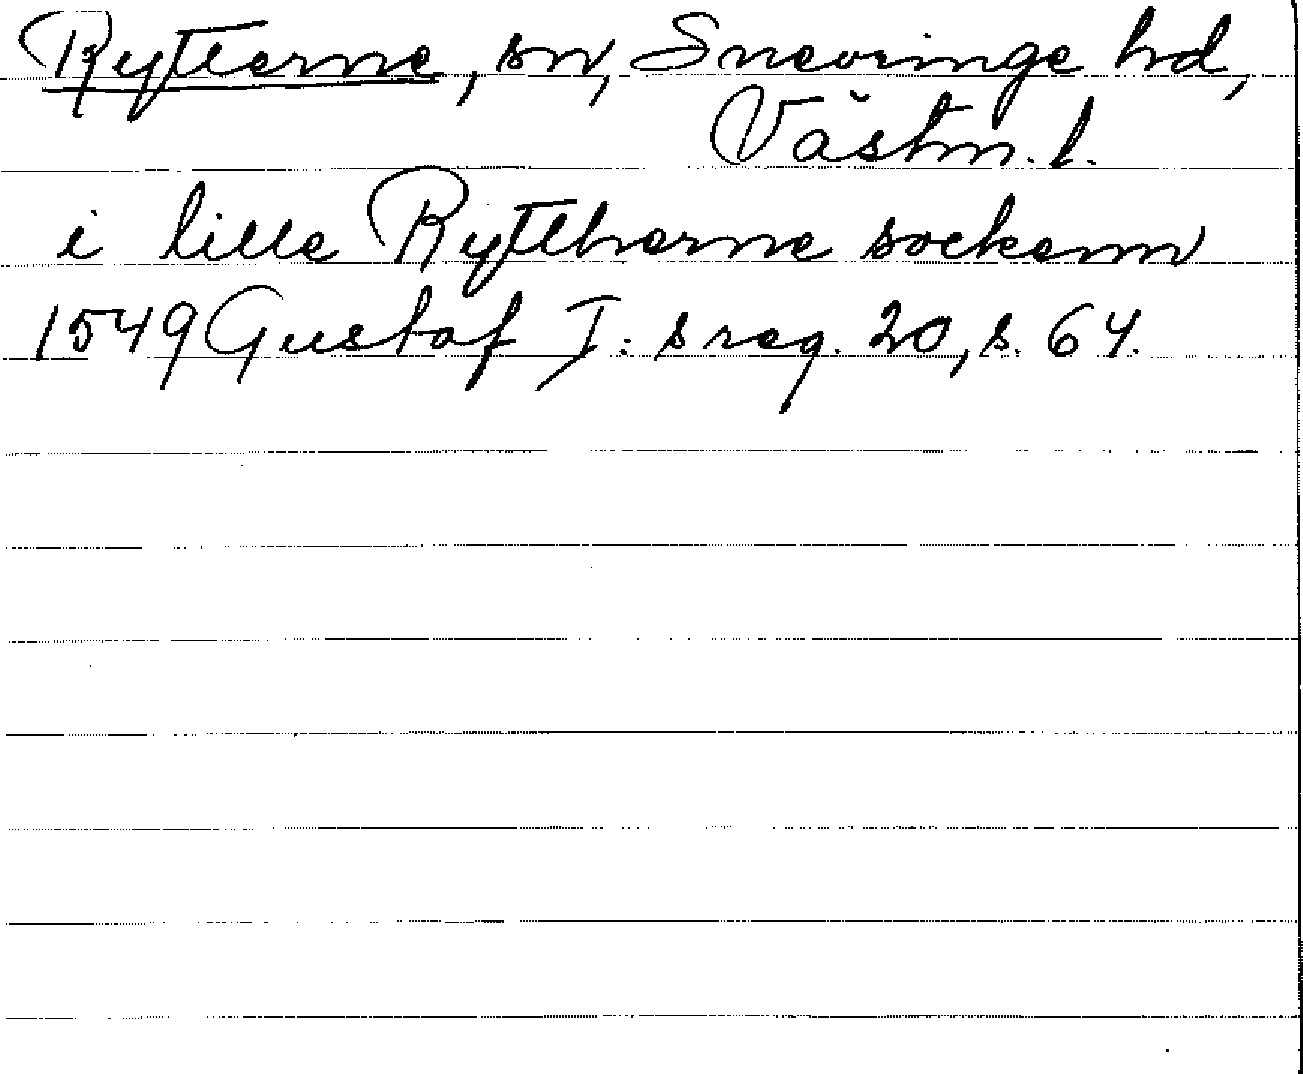 Rytterne, sn, Snevringe hd,
Västm. l.
i lille Ryttherne sockenn
1549 Gustaf I:s reg. 20, s. 64.